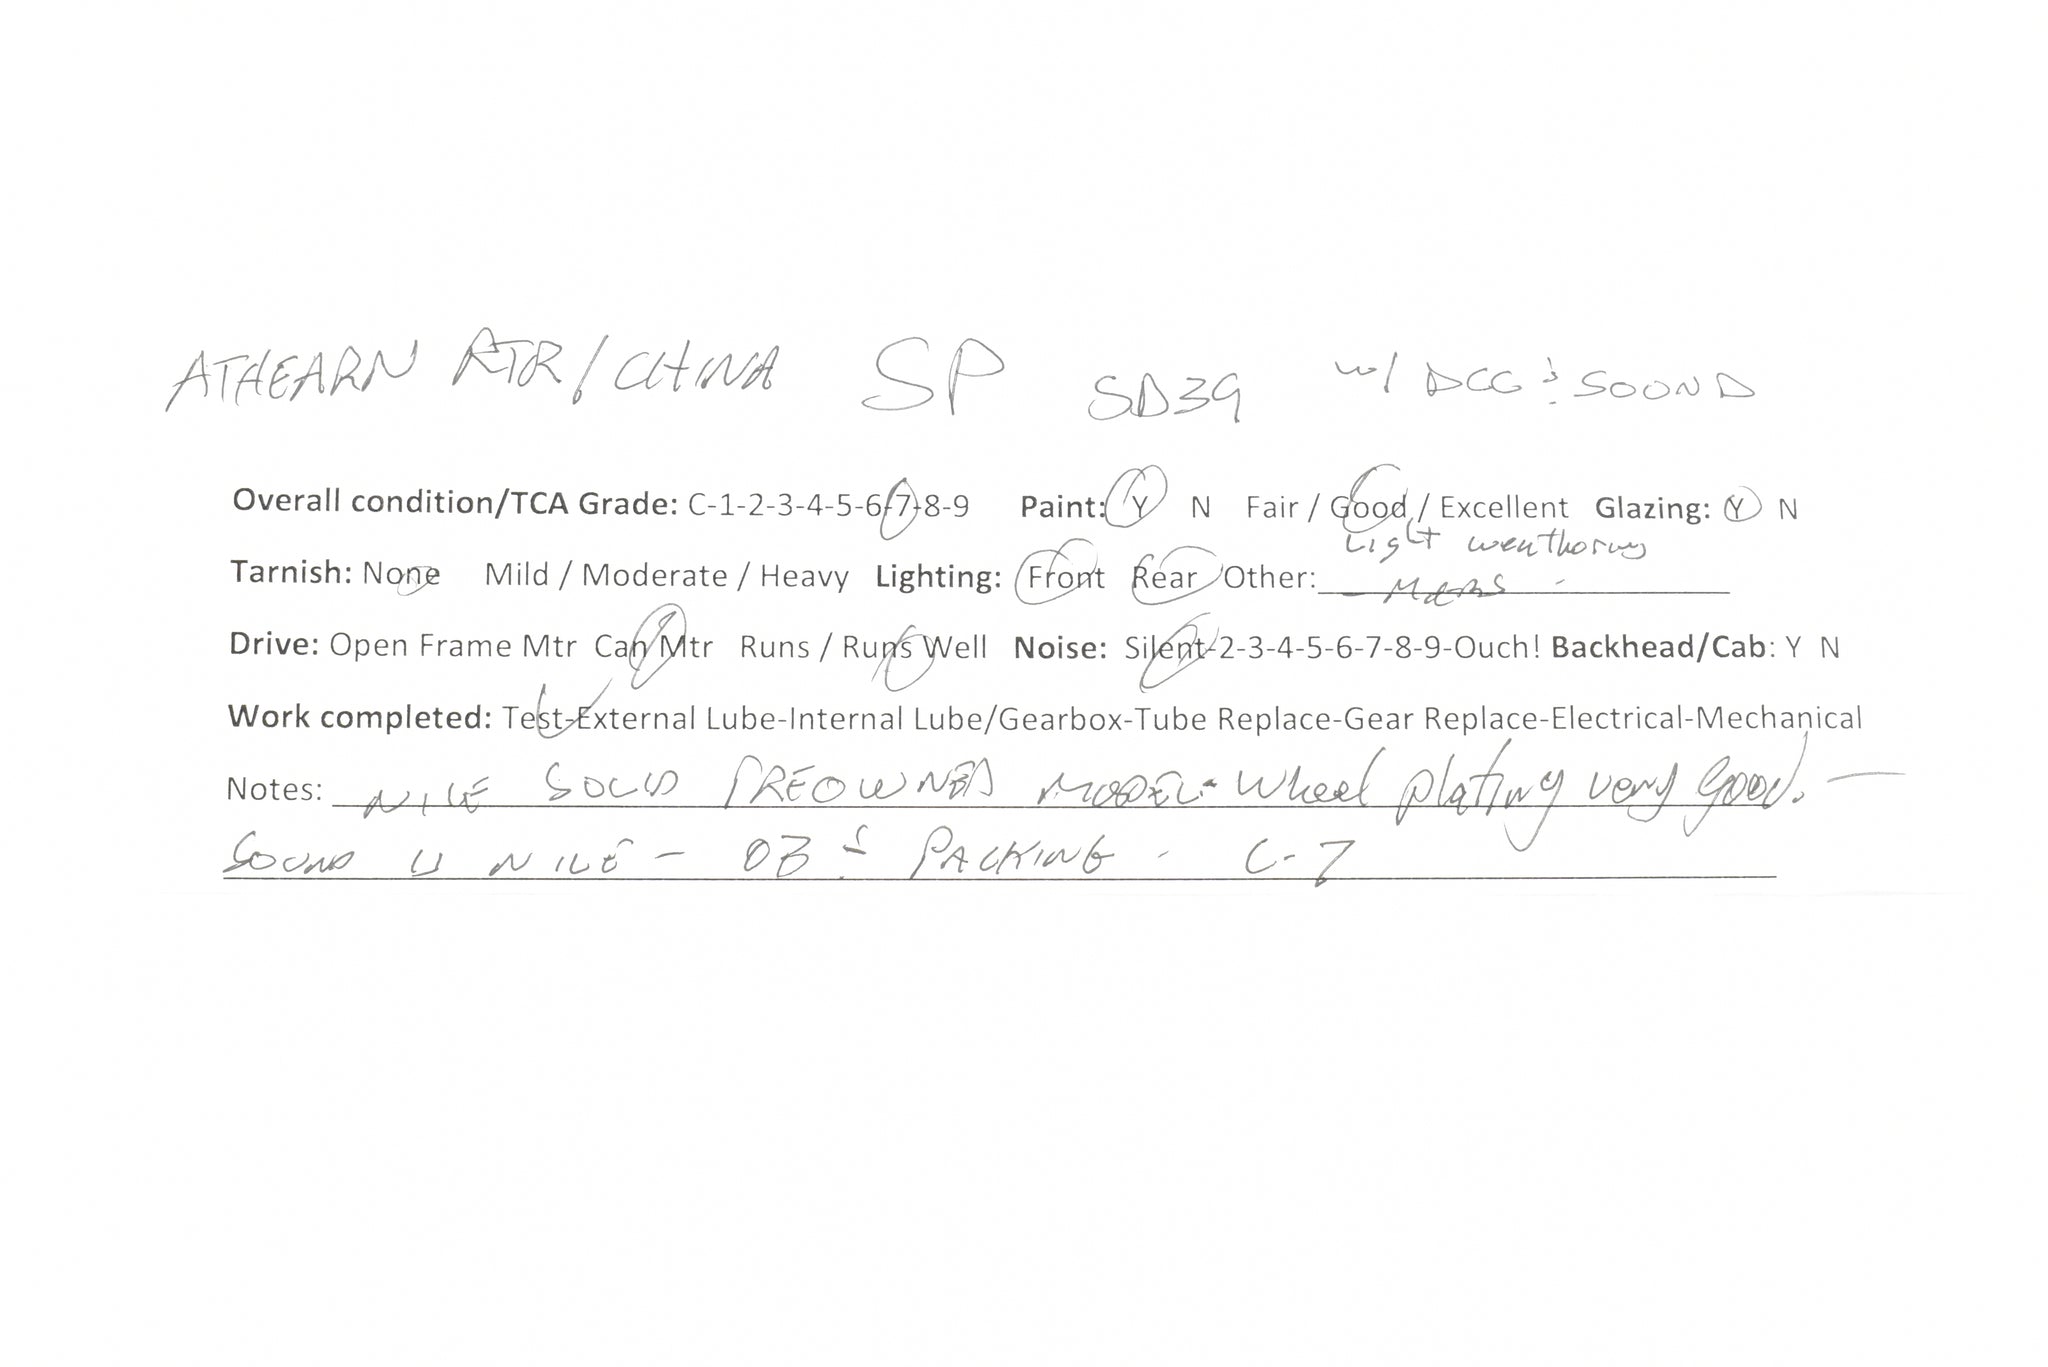 ATHEARN RTR/CHINA SP SD39 w/ DCC & SOUND
Overall condition/TCA Grade: C-1-2-3-4-5-6-7-8-9 Paint: Y N Fair / Good / Excellent Glazing: Y N
Light weathering
Tarnish: None Mild / Moderate / Heavy Lighting: Front Rear Other: MARS
Drive: Open Frame Mtr Can Mtr Runs / Runs Well Noise: Silent-2-3-4-5-6-7-8-9-Ouch! Backhead/Cab: Y N
Work completed: Test-External Lube-Internal Lube/Gearbox-Tube Replace-Gear Replace-Electrical-Mechanical
Notes: NICE SOLID PREOWNED MODEL - Wheel plating very good. -
SOUND IS NICE - OB & PACKING - C-7